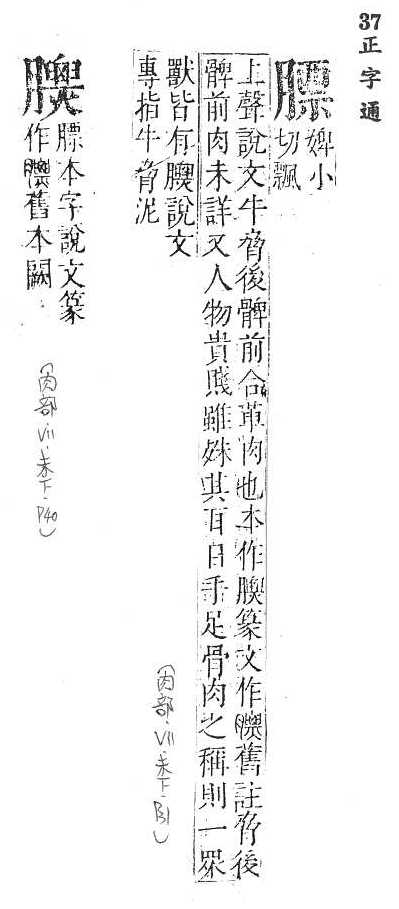 37正字通
膘
婢小
切飄
上聲說文牛脅後髀前合革肉也本作䐡篆文作䐡舊註脅後
髀前肉未詳又人物貴賤雖姝其耳目手足骨肉之稱則一眾
獸皆有䐡說文
專指牛脅泥
䐡
膘本字說文篆
作䐡舊本闕
(肉部.VII.未下.B1)
(肉部.VII.未下.P40)